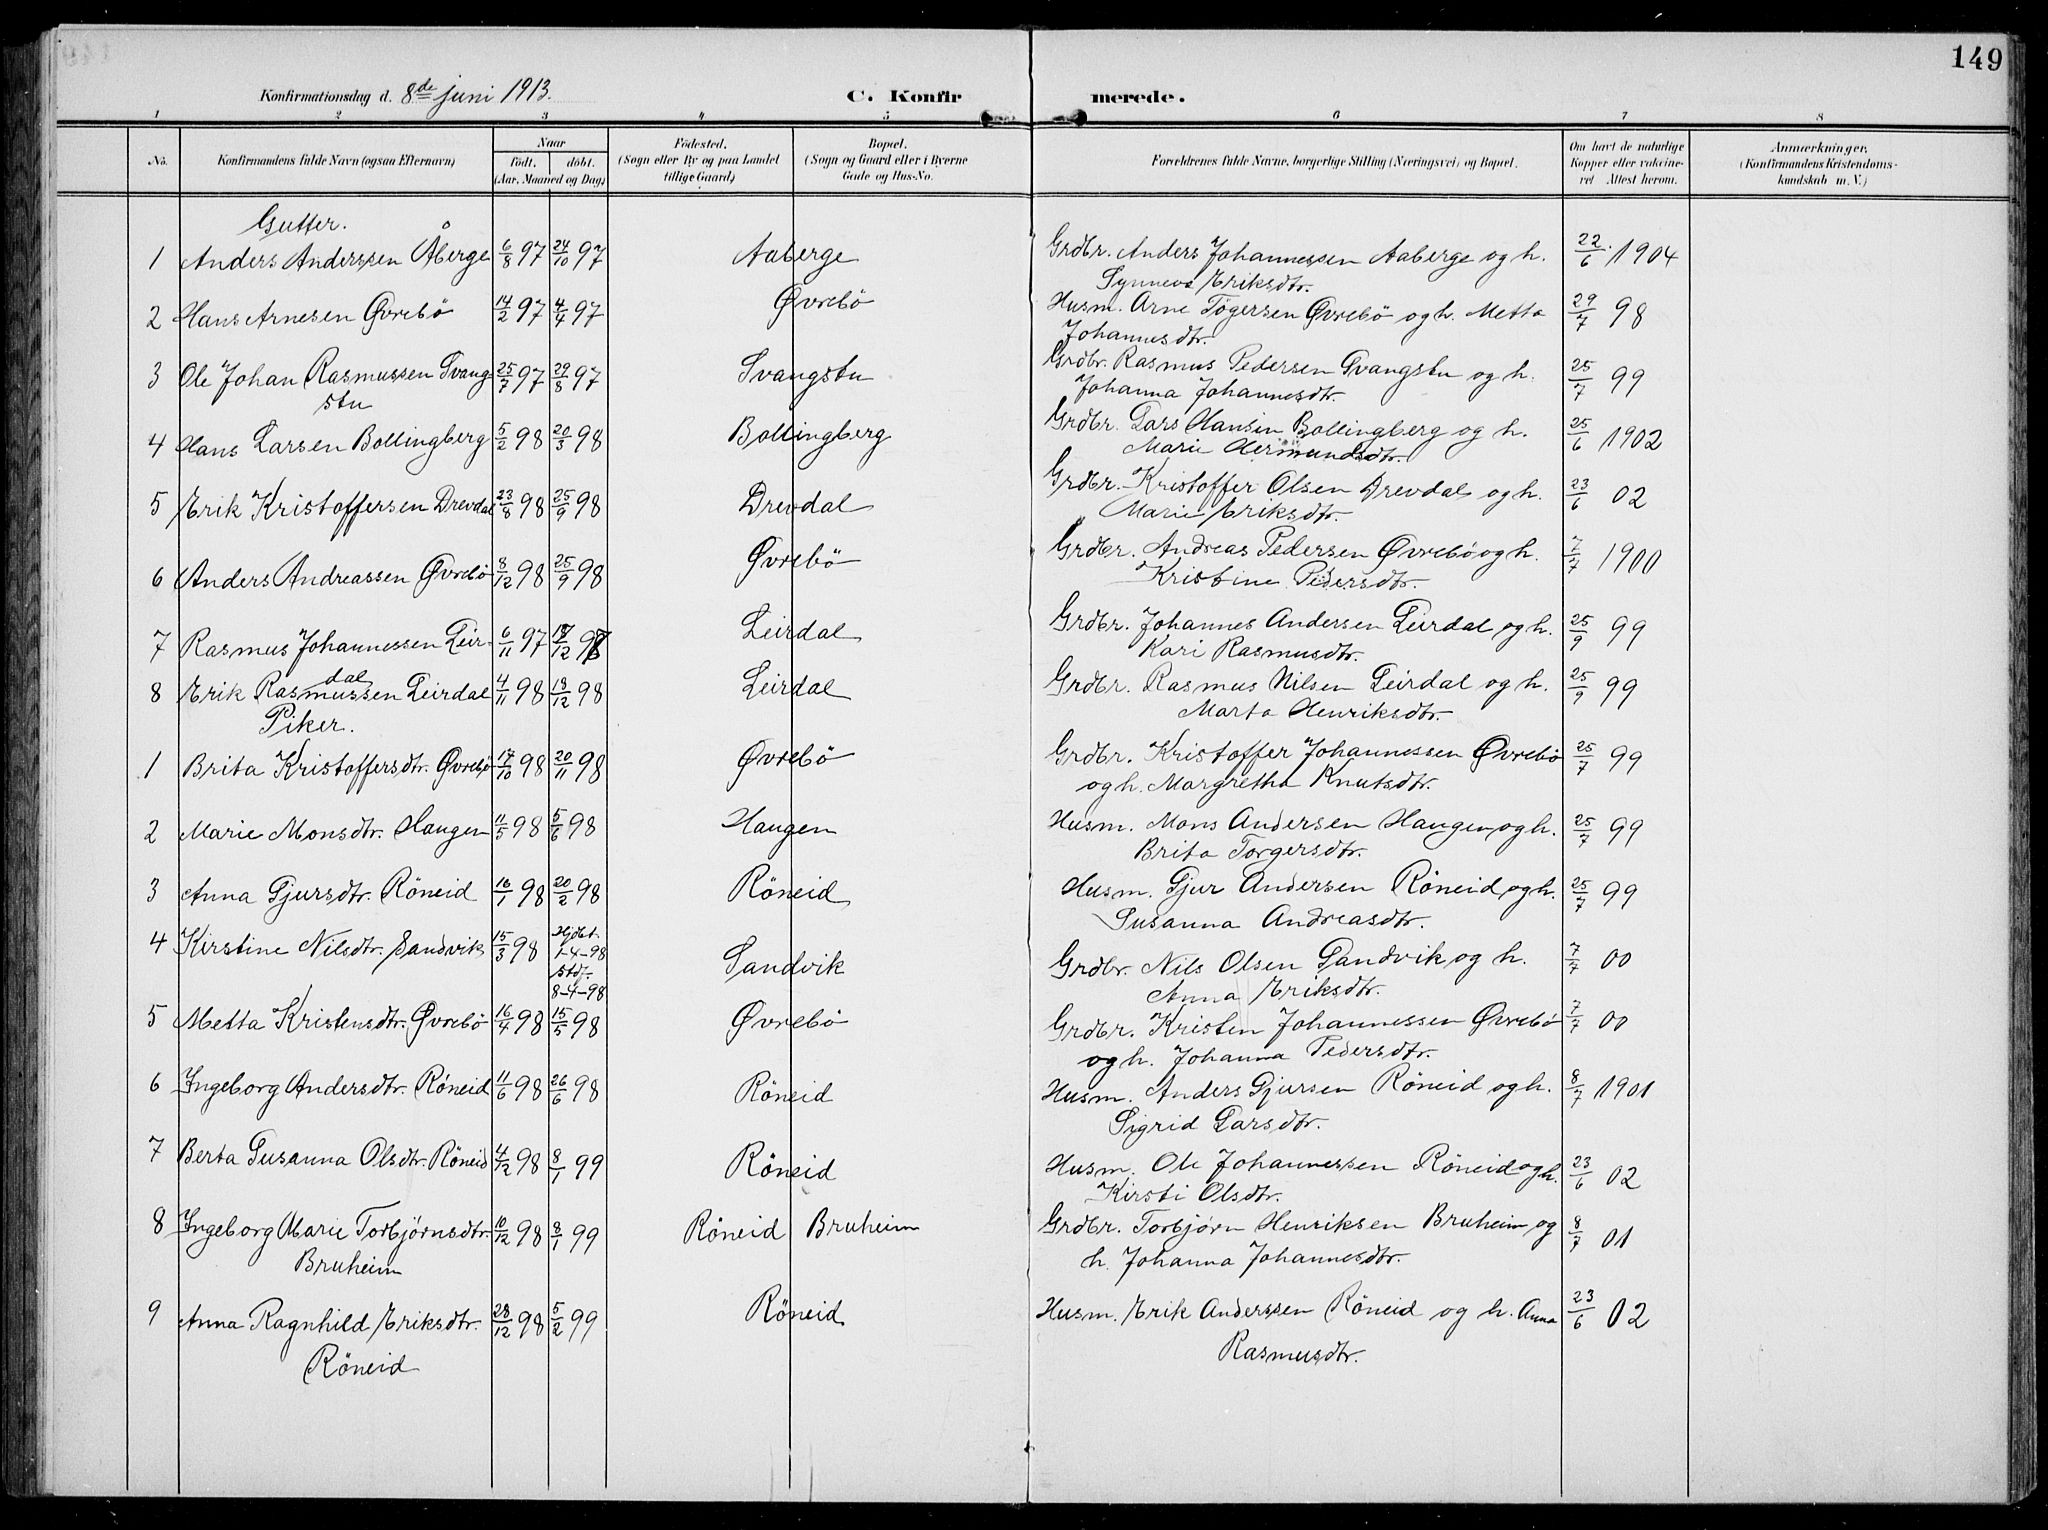 149
Konfirmationsdag d. 8de juni 1913. C. Konfirmerede.
1 2 3 4 5 6 7 8
No. Konfirmandens fulde Navn (ogsaa Efternavn) Naar født. døbt. (Aar, Maaned og Dag) Födested. (Sogn eller By og paa Landet tillige Gaard) Bopæl. (Sogn og Gaard eller i Byerne Gade og Hus-No. Forældrenes fulde Navne, borgerlige Stilling (Næringsvei) og Bopæl. Om havt de naturlige Kopper eller vakcineret Attest herom. Anmærkninger. (Konfirmandens Kristendomskundskab m. V.)
Gutter.
1 Anders Anderssen Åberge 6/8 97 24/10 97 Aaberge Grdbr. Anders Johannessen Aaberge og h. 22/6 1904
Synneva Eriksdtr.
2 Hans Arnesen Øvrebö 14/2 97 4/4 97 Øvrebö Husm. Arne Tögersen Øvrebö og h. Metta 29/7 98
Johannesdtr.
3 Ole Johan Rasmussen Svang- 25/7 97 29/8 97 Svangstu Grdbr. Rasmus Pedersen Svangstu og h. 25/7 99
stu Johanna Johannesdtr.
4 Hans Larsen Bollingberg 5/2 98 20/3 98 Bollingberg Grdbr. Lars Hansen Bollingberg og h. 25/6 1902
Marie Hermundsdtr.
5 Erik Kristoffersen Drevdal 23/8 98 25/9 98 Drevdal Grdbr. Kristoffer Olsen Drevdal og h. 23/6 02
Marie Eriksdtr.
6 Anders Andreassen Øvrebö 8/12 98 25/9 98 Øvrebö Grdbr. Andreas Pedersen Øvrebö og h. 7/7 1900
Kristine Pedersdtr.
7 Rasmus Johannessen Leir- 6/11 97 /12 Leirdal Grdbr. Johannes Andersen Leirdal og h. 25/9 99
dal Kari Rasmusdtr.
8 Erik Rasmussen Leirdal 4/11 98 18/12 98 Leirdal Grdbr. Rasmus Nilsen Leirdal og h. 25/9 99
Marta Henriksdtr.
Piker.
1 Brita Kristoffersdtr. Øvrebö 17/10 98 20/11 98 Øvrebö Grdbr. Kristoffer Johannessen Øvrebö 25/7 99
og h. Margretha Knutsdtr.
2 Marie Monsdtr. Haugen 11/5 98 5/6 98 Haugen Husm. Mons Andersen Haugen og h. 25/7 99
Brita Torgersdtr.
3 Anna Gjursdtr. Röneid 16/1 98 20/2 98 Röneid Husm. Gjur Andersen Röneid og h. 25/7 99
Susanna Andreasdtr.
4 Kirstine Nilsdtr. Sandvik 15/3 98 Hjdbt. 1-4-98 Stdf. 8-4-98 Sandvik Grdbr. Nils Olsen Sandvik og h. 7/7 00
Anna Eriksdtr.
5 Metta Kristensdtr. Øvrebö 16/4 98 15/5 98 Øvrebö Grdbr. Kristen Johannessen Øvrebö 7/7 00
og h. Johanna Pedersdtr.
6 Ingeborg Andersdtr. Röneid 11/6 98 26/6 98 Röneid Husm. Anders Gjursen Röneid og h. 8/7 1901
Sigrid Larsdtr.
7 Berta Susanna Olsdtr. Röneid 4/12 98 8/1 99 Röneid Husm. Ole Johannessen Röneid og h. 23/6 02
Kirsti Olsdtr.
8 Ingeborg Marie Torbjørnsdtr. 10/12 98 8/1 99 Röneid Bruheim Grdbr. Torbjørn Henriksen Bruheim og 8/7 01
Bruheim h. Johanna Johannesdtr.
9 Anna Ragnhild Eriksdtr. 28/12 98 5/2 99 Röneid Husm. Erik Anderssen Röneid og h. Anna 23/6 02
Röneid Rasmusdtr.